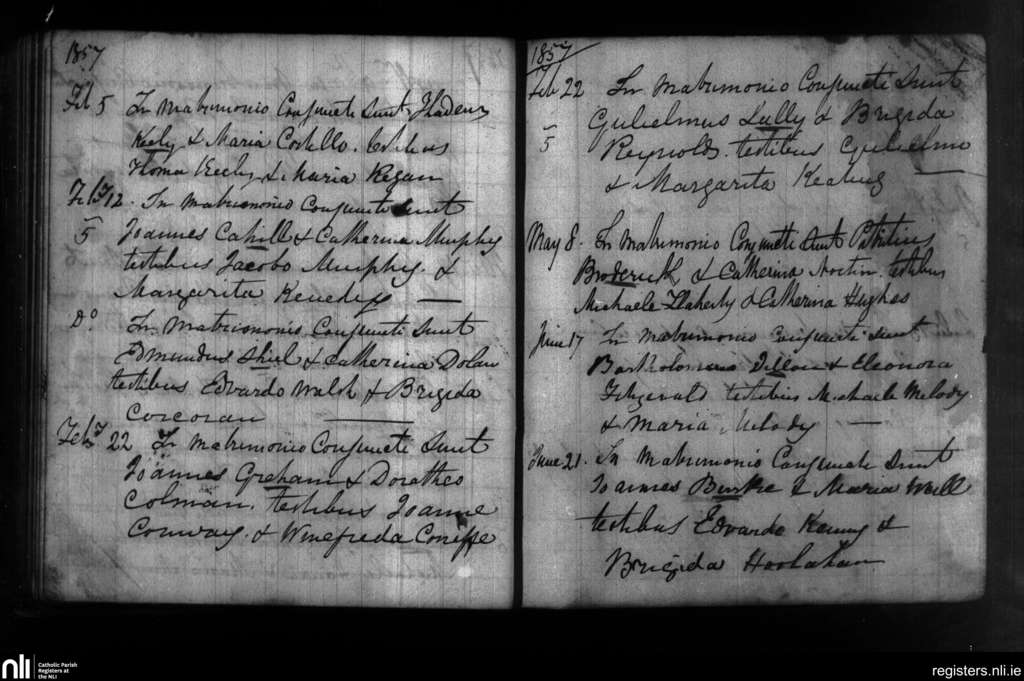 1857
Feb 5 In Matrimonio Conjuncti Sunt Thadeus
Keely & Maria Costello. testibus
Thoma Keely & Maria Regan
Feby 12. In Matrimonio Conjuncti Sunt
5 Joannes Cahill & Catherina Murphy
testibus Jacobo Murphy. &
Margarita Kenedy —
Do In Matrimonio Conjuncti Sunt
Edmundus Shiel & Catherina Dolan
testibus Edvardo Walsh & Brigida
Corcoran —
Feby 22 In Matrimonio Conjuncti Sunt
Joannes Graham & Dorathea
Colman. testibus Joanne
Conway. & Winefreda
1857
Feb 22 In Matrimonio Conjuncti Sunt
Gulielmus Lully & Brigida
5 Reynolds. testibus Gulielmo
& Margarita Keating
May 8. In Matrimonio Conjuncti Sunt Patritius
Broderick & Catherina testibus
Michaele Flaherty & Catherina Hughes
June 17 In Matrimonio Conjuncti Sunt
Bartholomeus Dillon & Eleonora
Fitzgerald testibus Michaele Melody
& Maria Melody —
June 21. In Matrimonio Conjuncti Sunt
Joannes Burke & Maria Wall
testibus Edvardo Kenny &
Brigida Hoolahan
nli
Catholic Parish
Registers at
the NLI
registers.nli.ie